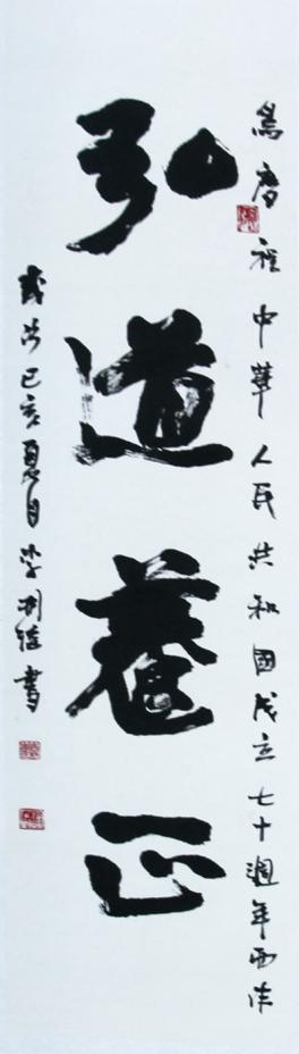 為慶祝中華人民共和國成立七十週年而作
弘道養正
歲次己亥夏月李書